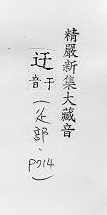 精嚴新集大藏音
迃于音(辵部、P714)